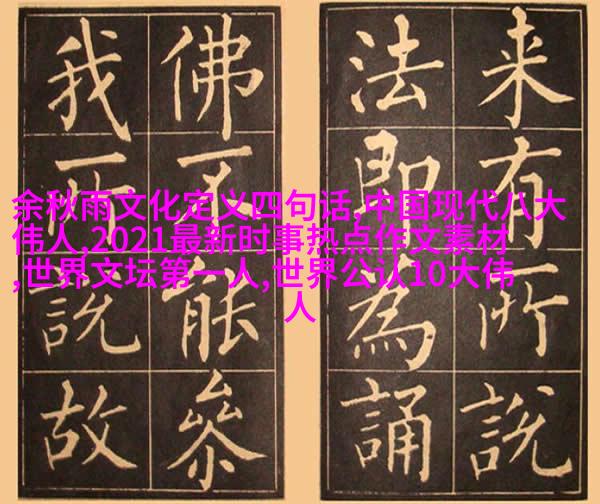 来有所說
法即為誦
佛不能叅
我所說故
余秋雨文化定义四句话,中国现代八大
伟人,2021最新时事热点作文素材
,世界文坛第一人,世界公认10大伟
人